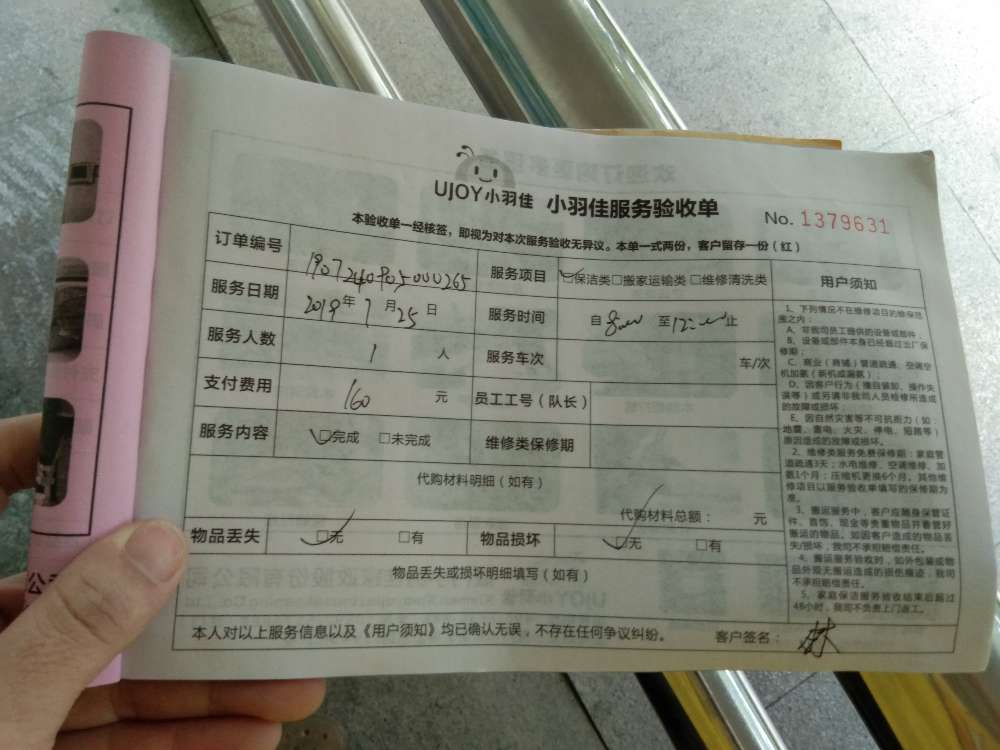 UJOY小羽佳 小羽佳服务验收单 No. 1379631
本验收单一经核签，即视为对本次服务验收无异议。本单一式两份，客户留存一份（红）
订单编号 1907240905000265 服务项目 ☑保洁类□搬家运输类□维修清洗类
服务日期 2019年7月25日 服务时间 自8:00至12:00止
服务人数 1 人 服务车次 车/次
支付费用 160 元 员工工号（队长）
服务内容 ☑完成 □未完成 维修类保修期
代购材料明细（如有）
代购材料总额： 元
物品丢失 ☑无 □有 物品损坏 ☑无 □有
物品丢失或损坏明细填写（如有）
本人对以上服务信息以及《用户须知》均已确认无误，不存在任何争议纠纷。 客户签名： 林
用户须知
1、下列情况不在维修项目的维保范
围之内：
A、非我司员工提供的设备或部件；
B、设备或部件本身已经超过出厂保
修期；
C、商业（商铺）管道疏通、空调空
机加氨（新机或漏氨）；
D、因客户行为（擅自装卸、操作失
误等）或另请非我司人员检修所造成
的故障或损坏；
E、因自然灾害等不可抗拒力（如：
地震、雷电、火灾、停电、短路等）
原因造成的故障或损坏。
2、维修类服务免费保修期：家庭管
道疏通3天；水电维修、空调维修、加
氨1个月；压缩机更换6个月。其他维
修项目以服务验收单填写的保修期为
准。
3、搬运服务中，客户应随身保管证
件、首饰、现金等贵重物品并看管好
搬运的物品。如因客户造成的物品丢
失/损坏，我司不承担赔偿责任。
4、搬运服务验收时，如外包装或物
品外观无搬运造成的损伤痕迹，我司
不承担赔偿责任。
5、家庭保洁服务验收结束后超过
48小时，我司不负责上门返工。